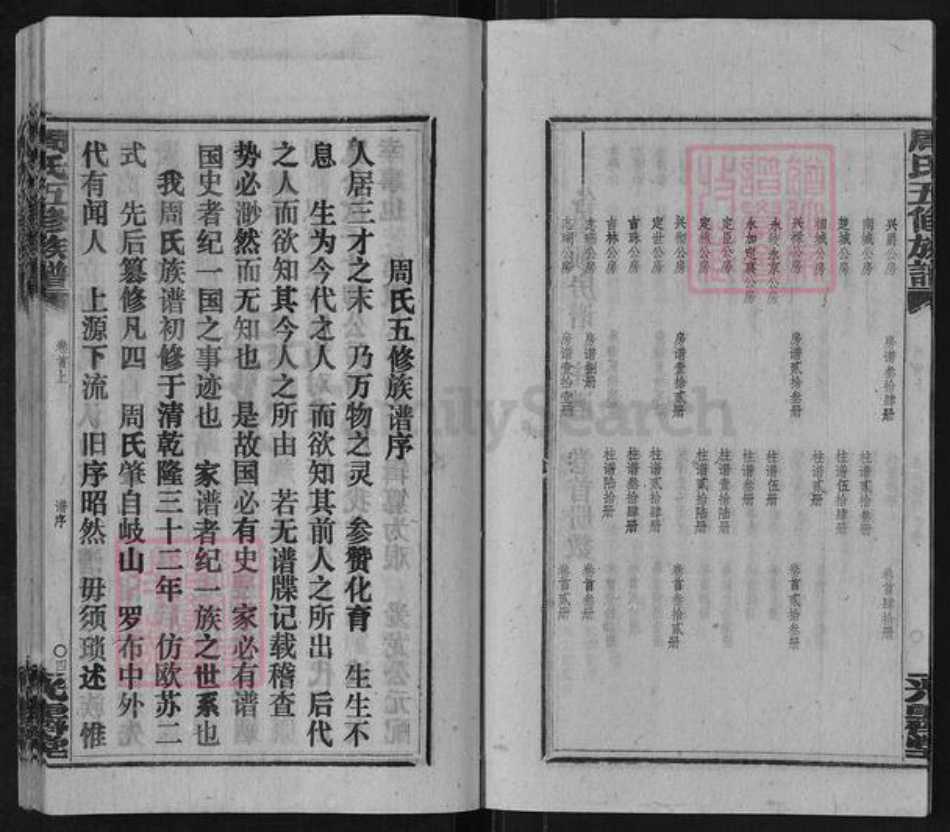 周氏五修族譜
兴爵公房 房谱叁拾肆册 卷首肆拾册
南城公房 柱谱贰拾叁册
楚城公房 柱谱伍拾肆册
相城公房 柱谱贰册
兴禄公房 房谱贰拾叁册 卷首贰拾叁册
永绫永京公房 柱谱伍册
永加定真公房 柱谱叁册
定臣公房 柱谱壹拾陆册
定城公房 柱谱贰拾陆册
兴衡公房 房谱壹拾贰册 卷首叁拾贰册
定世公房 柱谱贰拾册
吉珠公房 柱谱叁拾肆册
吉林公房 柱谱陆拾册
志瑞公房 房谱叁册 卷首叁册
志瑚公房 房谱壹拾壹册 卷首贰册
周氏五修族谱序
人居三才之末 乃万物之灵 参赞化育 生生不
息 生为今代之人 而欲知其前人之所出 后代
之人而欲知其今人之所由 若无谱牒记载稽查
势必渺然而无知也 是故国必有史 家必有谱
国史者纪一国之事迹也 家谱者纪一族之世系也
我周氏族谱初修于清乾隆三十二年 仿欧苏二
式 先后纂修凡四 周氏肇自岐山 罗布中外
代有闻人 上源下流 旧序昭然 毋须琐述 惟
周氏五修族谱
卷首上
谱序
〇四
FamilySearch